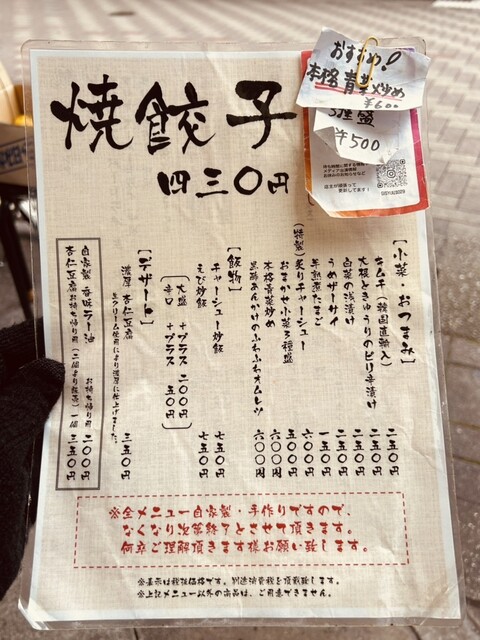 焼餃子
四三〇円
おすすめ!
本格青菜炒め
¥600
3種盛
¥500
【小菜・おつまみ】
キムチ(韓国直輸入) 二五〇円
大根ときゅうりのピリ辛漬け 二五〇円
白菜の浅漬け 二五〇円
うめザーサイ 二五〇円
半熟煮たまご 一五〇円
(特製)炙りチャーシュー 六〇〇円
おまかせ小菜3種盛 五〇〇円
本格青菜炒め 六〇〇円
黒酢あんかけのふわふわオムレツ 六〇〇円
【飯物】
チャーシュー炒飯 七五〇円
えび炒飯 七五〇円
大盛 +プラス 二〇〇円
辛口 +プラス 五〇円
【デザート】
濃厚 杏仁豆腐 三五〇円
生クリーム使用により濃厚に仕上げました。
自家製 香味ラー油 お持ち帰り用 二〇〇円
杏仁豆腐お持ち帰り用(二個より販売)一個 三五〇円
※全メニュー自家製・手作りですので、
なくなり次第終了とさせて頂きます。
何卒ご理解頂きます様お願い致します。
※表示は税抜価格です。別途消費税を頂戴致します。
※上記メニュー以外の商品は、ご用意できません。